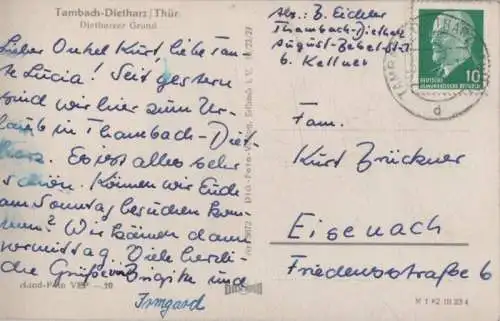 Tambach-Dietharz/Thür.
Dietharzer Grund
Lieber Onkel Kurt liebe Tan-
te Lucia! Seit gestern
sind wir hier zum Ur-
laub in Thambach-Diet-
harz. Es ist alles sehr
schön. Können wir Euch
am Sonntag besuchen kom-
men? Wir kämen dann
vormittag. Viele herzli-
che Grüße von Brigitte und
Irmgard
Abs.: B. Eichler
Thambach-Dietharz
August-Bebel-St.
b. Kellner
DEUTSCHE
DEMOKRATISCHE REPUBLIK
10
d
Fam.
Kurt Brückner
Eisenach
Friedensstraße 6